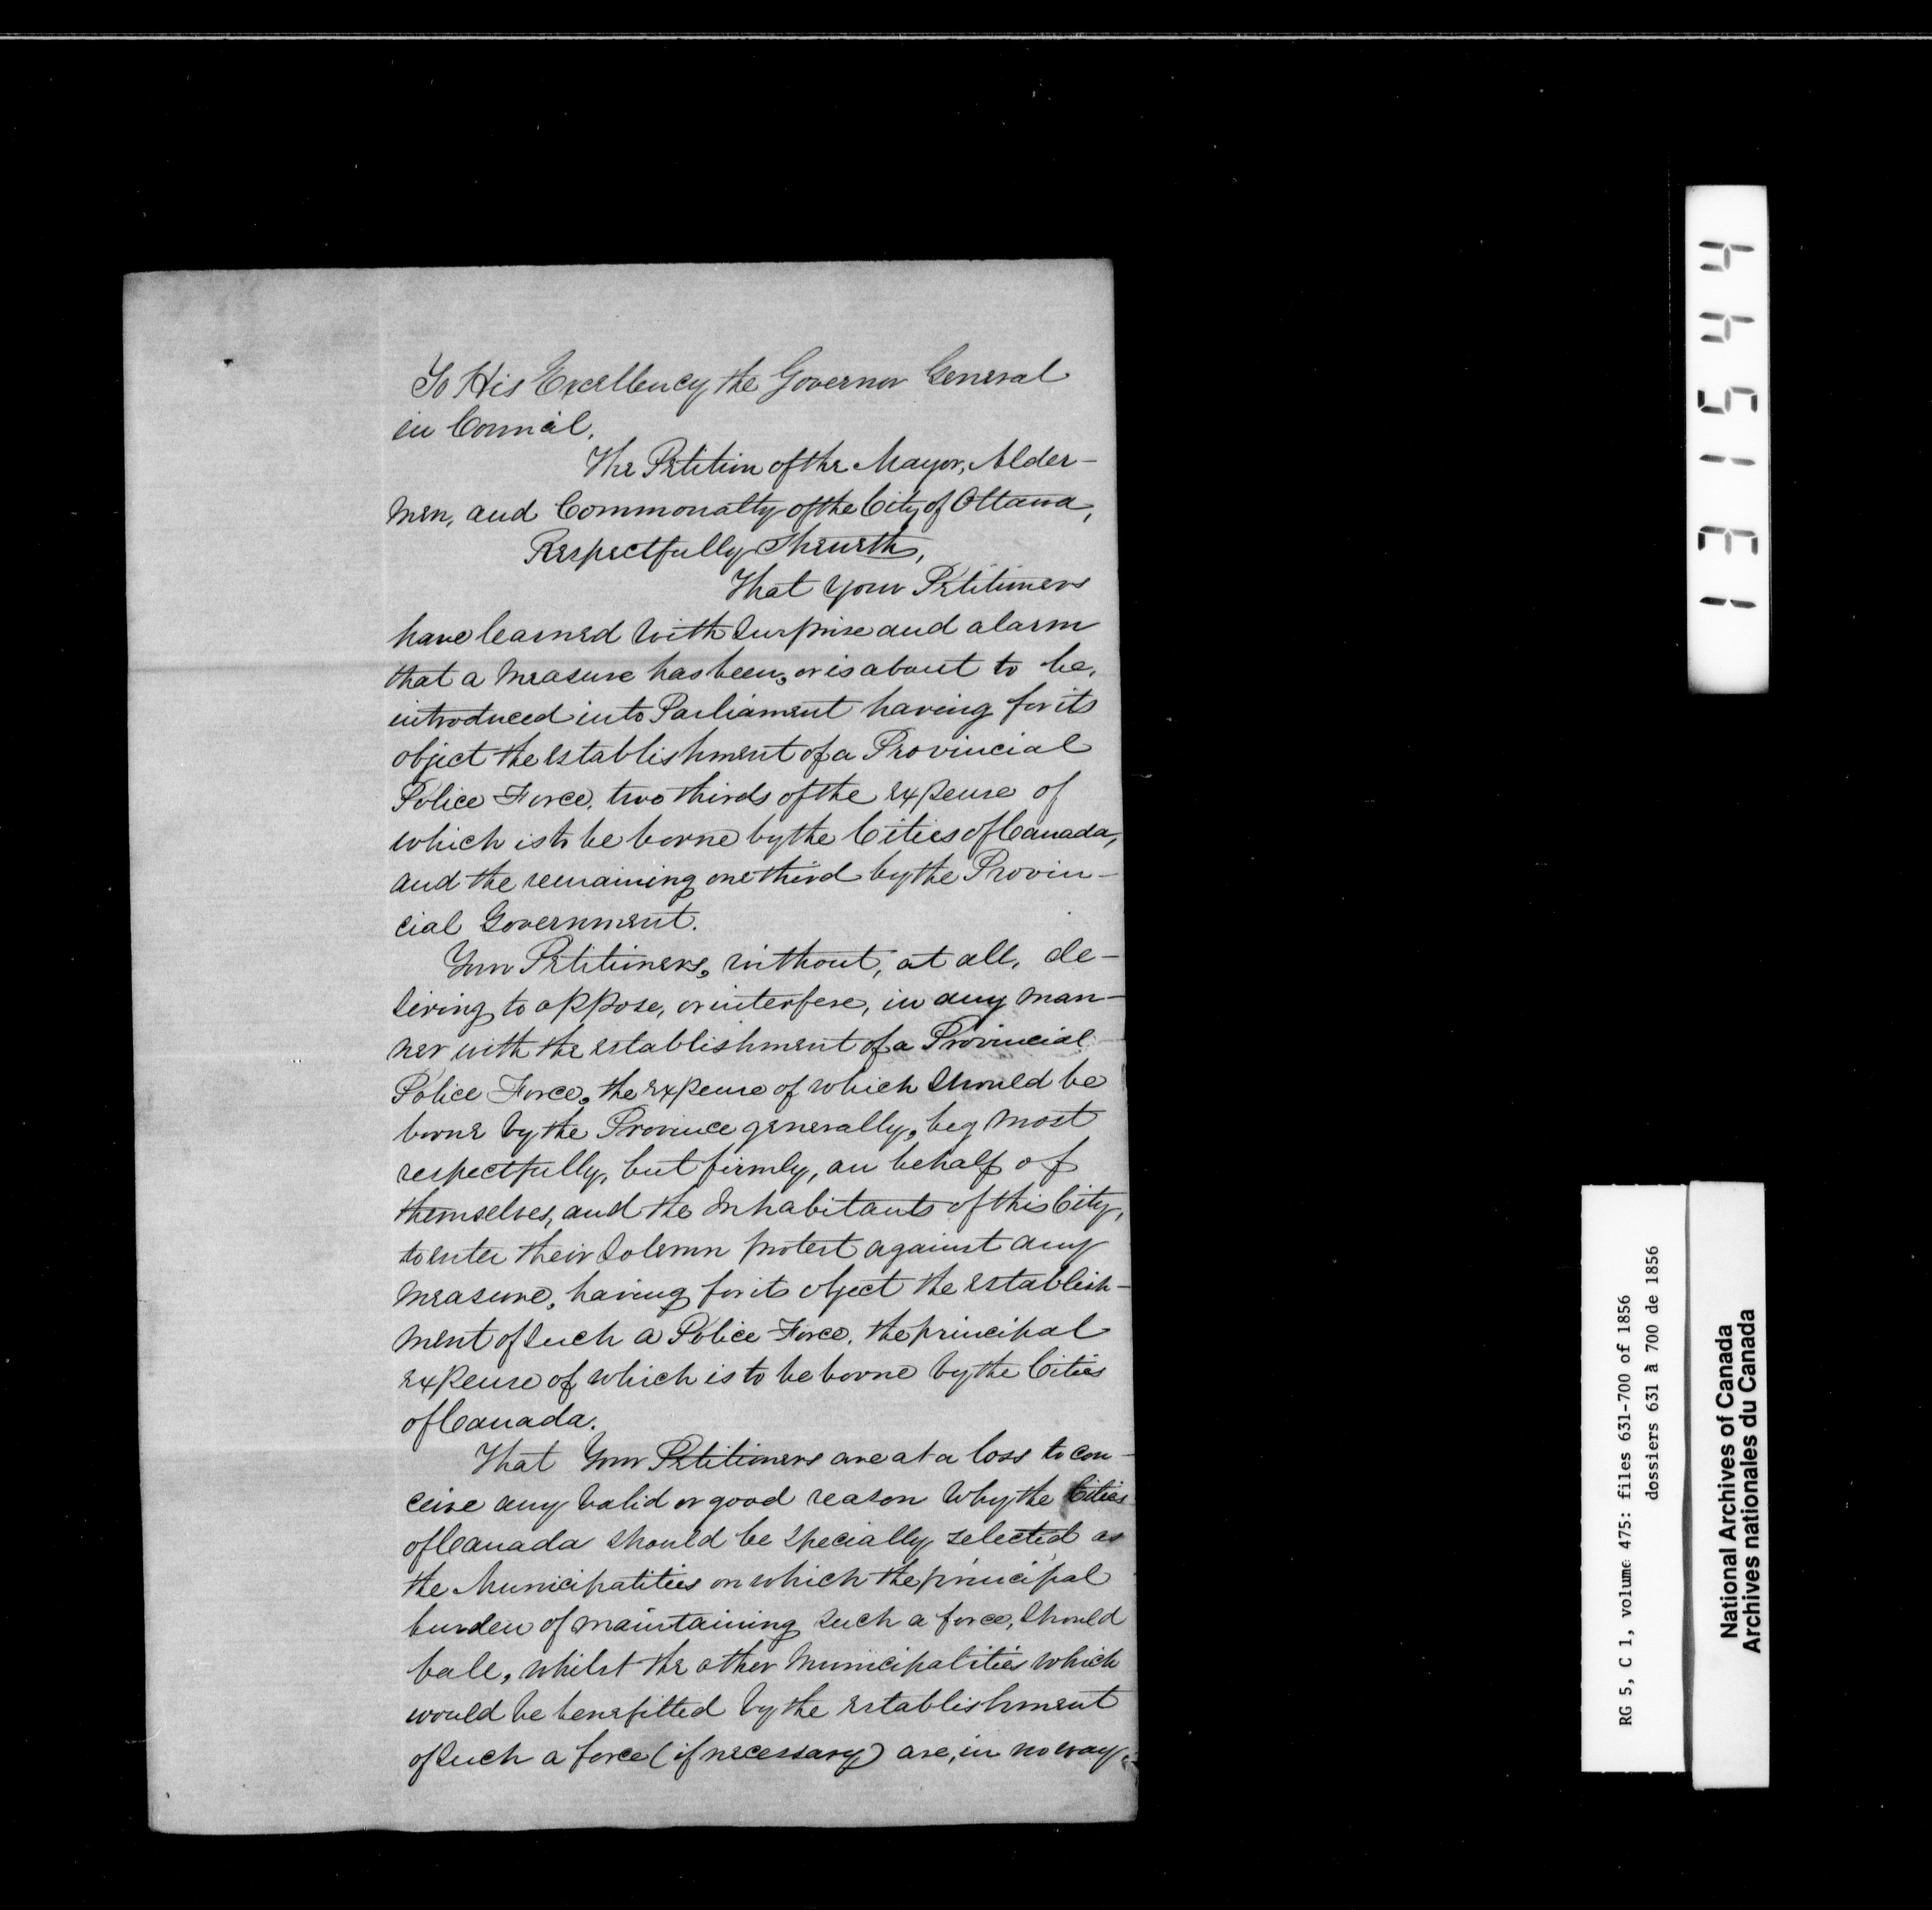 To His Excellency the Governor General
in Council.
The Petition of the Mayor, Alder-
men, and Commonalty of the City of Ottawa,
Respectfully Sheweth,
That Your Petitioners
have learned with surprise and alarm
that a measure has been, or is about to be,
introduced into Parliament having for its
object the establishment of a Provincial
Police Force, two thirds of the expense of
which is to be borne by the Cities of Canada,
and the remaining one third by the Provin-
cial Government.
Your Petitioners, without, at all, de-
siring to oppose, or interfere, in any man-
ner with the establishment of a Provincial
Police Force, the expense of which should be
borne by the Province generally, beg most
respectfully, but firmly, on behalf of
themselves, and the Inhabitants of this City,
to enter their solemn protest against any
measure, having for its object the establish-
ment of such a Police Force, the principal
expense of which is to be borne by the Cities
of Canada.
That Your Petitioners are at a loss to con-
ceive any valid or good reason why the Cities
of Canada should be specially selected as
the Municipalities on which the principal
burden of maintaining such a force, should
fall, whilst the other Municipalities which
would be benefitted by the establishment
of such a force (if necessary) are, in no way,
1 3 1 5 4 4
RG 5, C 1, volume 475: files 631-700 of 1856
dossiers 631 à 700 de 1856
National Archives of Canada
Archives nationales du Canada